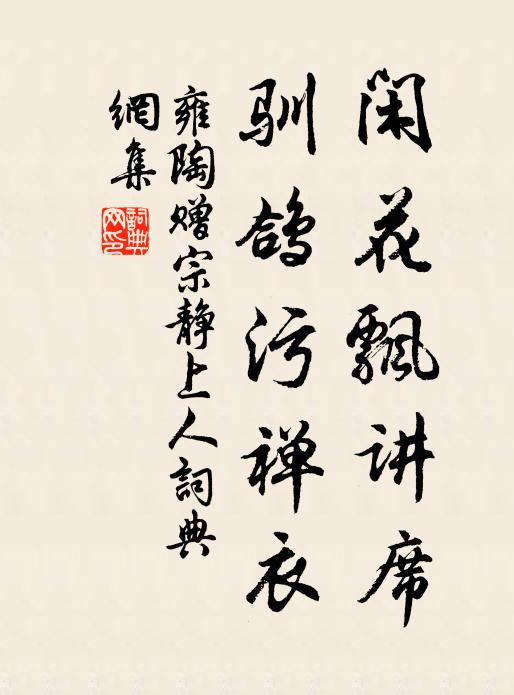 闲花飘讲席
驯鸽污禅衣
雍陶赠宗静上人詞典
網集
詞典网印